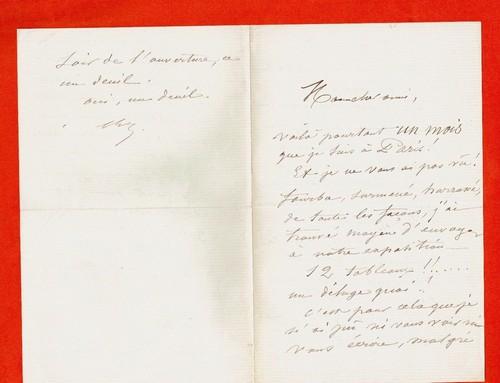 Soir de l'ouverture, ce
un deuil.
oui, un deuil.
Mon cher ami,
voilà pourtant un mois
que je suis à Paris!
Et je ne vous ai pas vu!
fourbu, surmené, harrassé,
de toutes les façons, j'ai
trouvé moyen d'envoyer
à notre exposition
12 tableaux!!......
un déluge quoi..!
C'est pour cela que je
n'ai pu ni vous voir ni
vous écrire, malgré